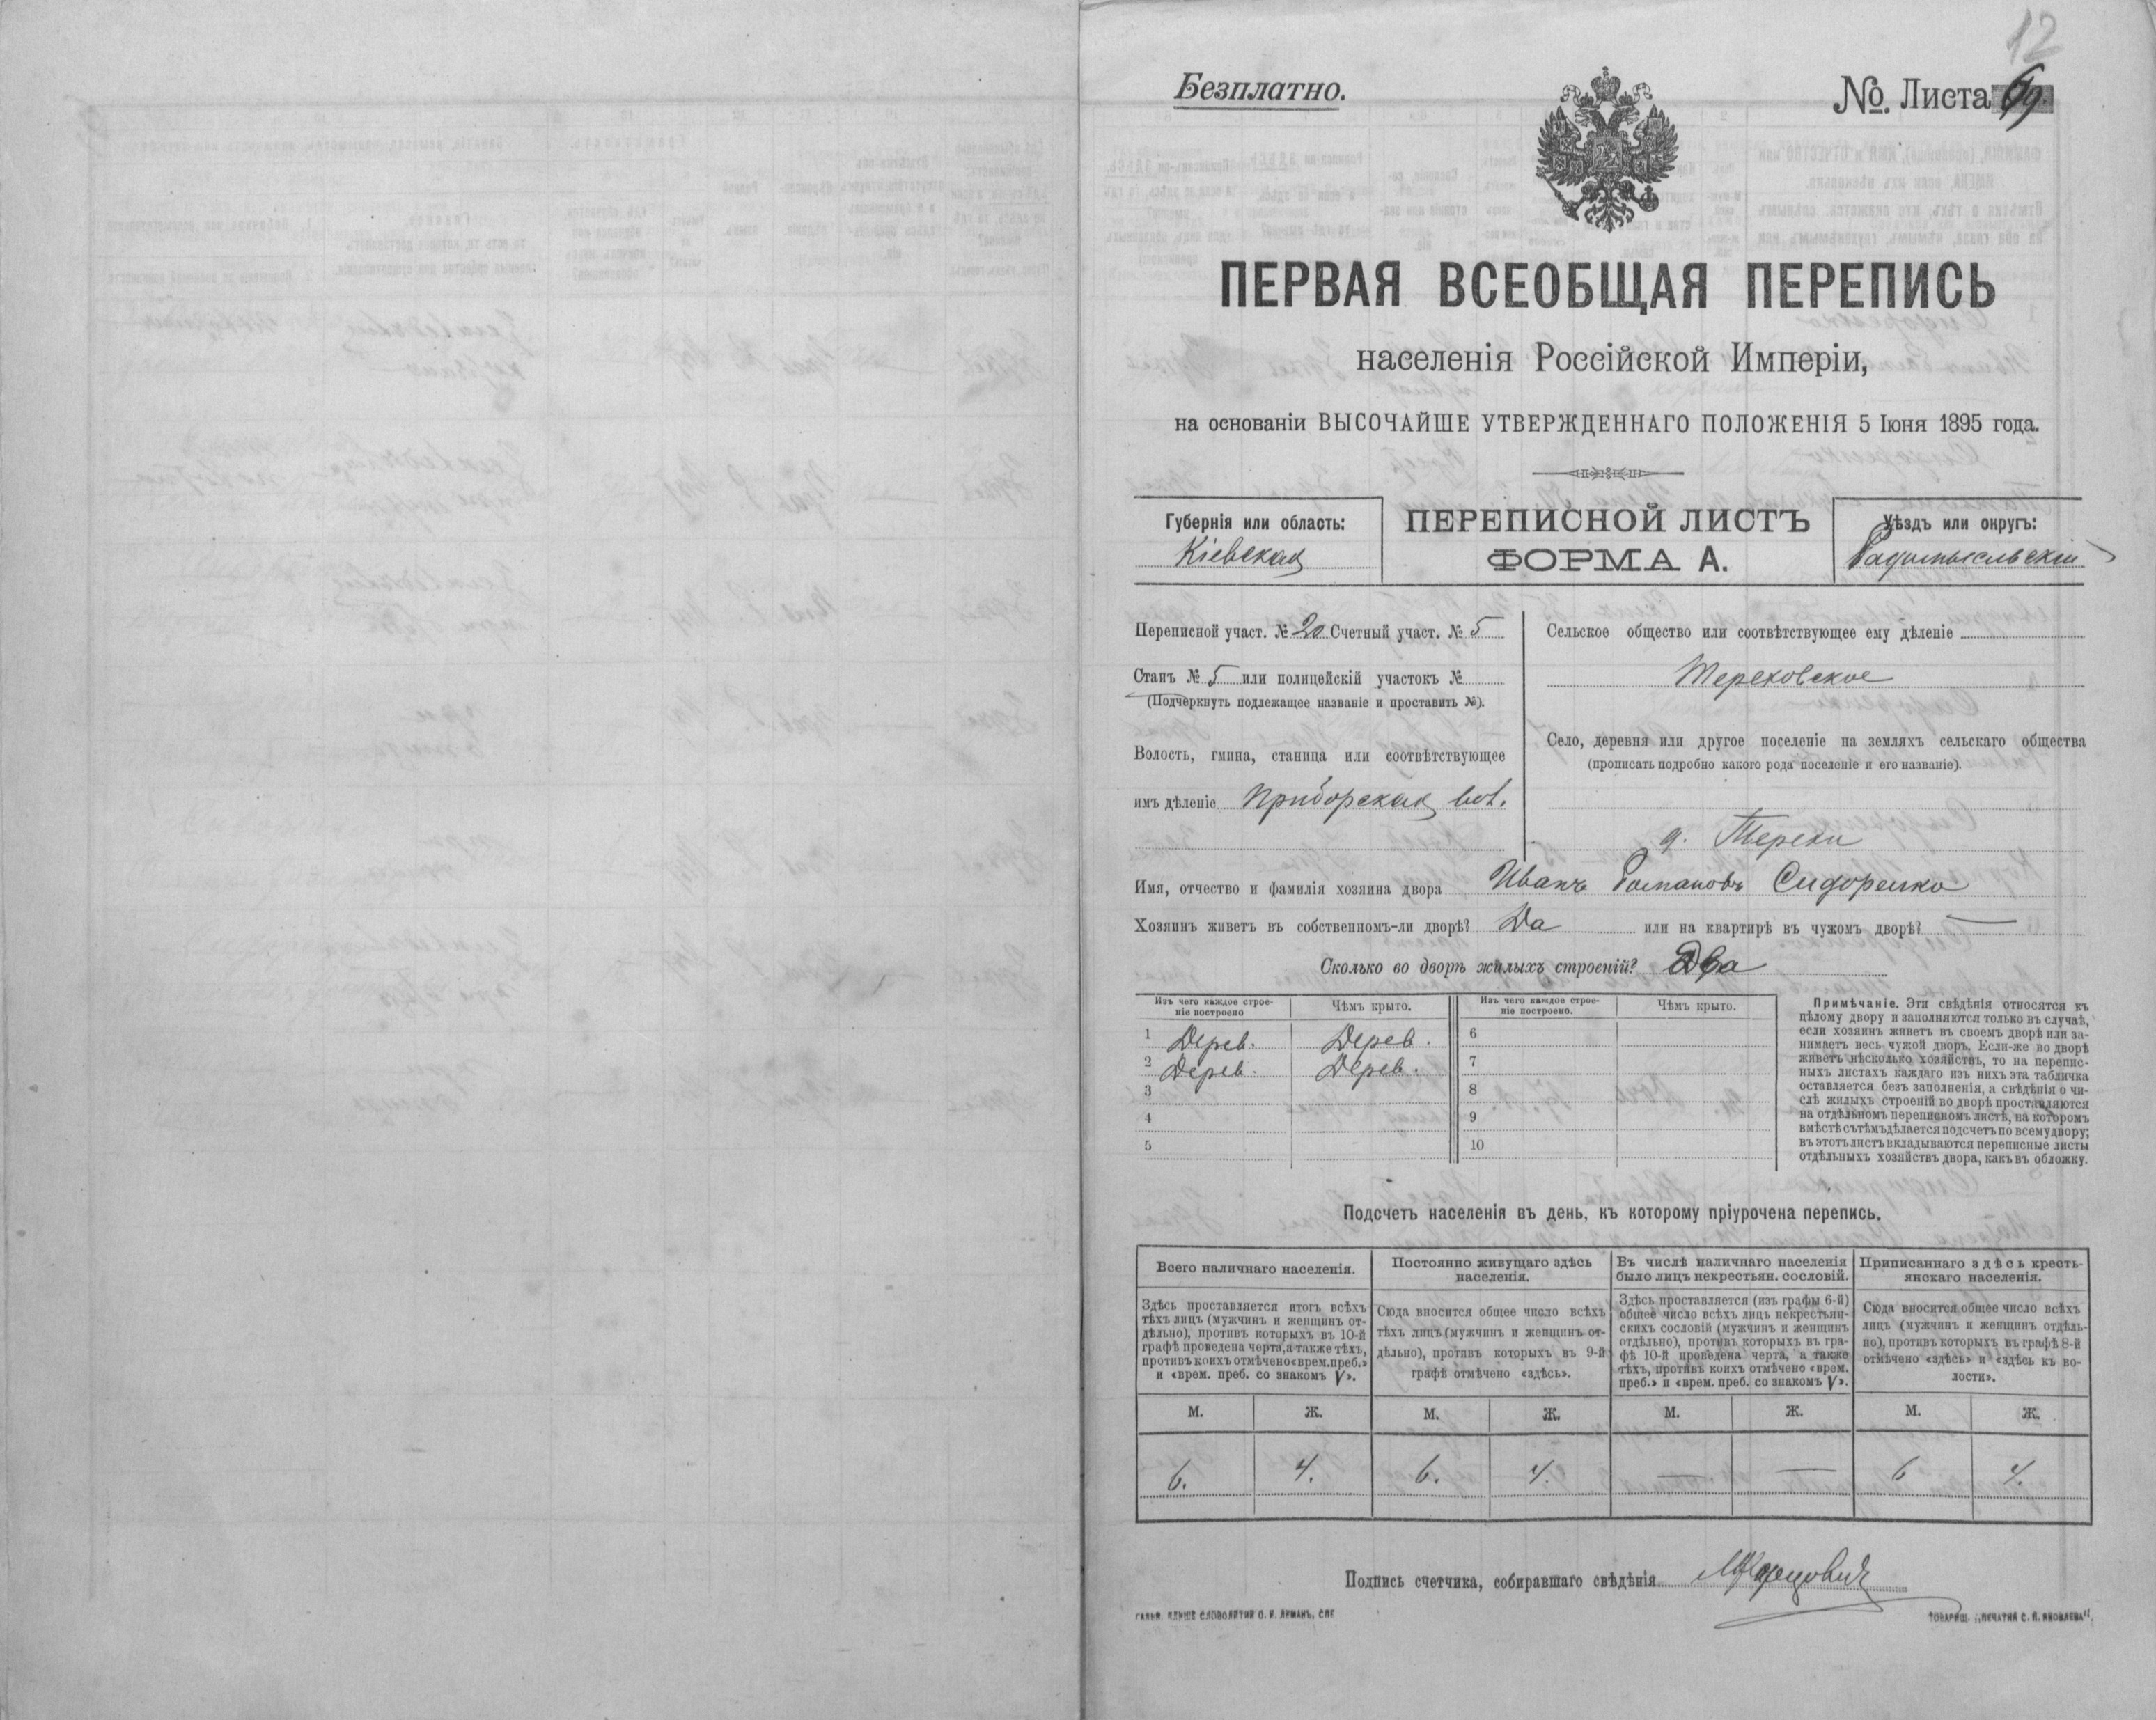 12
Безплатно.
№ Листа 69.
ПЕРВАЯ ВСЕОБЩАЯ ПЕРЕПИСЬ
населенія Россійской Имперіи,
на основаніи ВЫСОЧАЙШЕ УТВЕРЖДЕННАГО ПОЛОЖЕНІЯ 5 Іюня 1895 года.
Губернія или область:
Кіевская
ПЕРЕПИСНОЙ ЛИСТЪ
ФОРМА А.
Уѣздъ или округъ:
Радомысльскій
Переписной участ. № 20 Счетный участ. № 5
Станъ № 5 или полицейскій участокъ №
(Подчеркнуть подлежащее названіе и проставить №).
Волость, гмина, станица или соотвѣтствующее
имъ дѣленіе Приборская вол.
Сельское общество или соотвѣтствующее ему дѣленіе
Тереховское
Село, деревня или другое поселеніе на земляхъ сельскаго общества
(прописать подробно какого рода поселеніе и его названіе).
д. Терехи
Имя, отчество и фамилія хозяина двора Иванъ Романовъ Сидоренко
Хозяинъ живетъ въ собственномъ-ли дворѣ? Да или на квартирѣ въ чужомъ дворѣ? —
Сколько во дворѣ жилыхъ строеній? Два
Изъ чего каждое строе-
ніе построено
Чѣмъ крыто.
Изъ чего каждое строе-
ніе построено.
Чѣмъ крыто.
1 Дерев. Дерев. 6
2 Дерев. Дерев. 7
3 8
4 9
5 10
Примѣчаніе. Эти свѣдѣнія относятся къ
цѣлому двору и заполняются только въ случаѣ,
если хозяинъ живетъ въ своемъ дворѣ или за-
нимаетъ весь чужой дворъ. Если-же во дворѣ
живетъ нѣсколько хозяйствъ, то на перепис-
ныхъ листахъ каждаго изъ нихъ эта табличка
оставляется безъ заполненія, а свѣдѣнія о чи-
слѣ жилыхъ строеній во дворѣ проставляются
на отдѣльномъ переписномъ листѣ, на которомъ
вмѣстѣ съ тѣмъ дѣлается подсчетъ по всему двору;
въ этотъ листъ вкладываются переписные листы
отдѣльныхъ хозяйствъ двора, какъ въ обложку.
Подсчетъ населенія въ день, къ которому пріурочена перепись.
Всего наличнаго населенія.
Здѣсь проставляется итогъ всѣхъ
тѣхъ лицъ (мужчинъ и женщинъ от-
дѣльно), противъ которыхъ въ 10-й
графѣ проведена черта, а также тѣхъ,
противъ коихъ отмѣчено «врем. преб.»
и «врем. преб. со знакомъ V».
Постоянно живущаго здѣсь
населенія.
Сюда вносится общее число всѣхъ
тѣхъ лицъ (мужчинъ и женщинъ от-
дѣльно), противъ которыхъ въ 9-й
графѣ отмѣчено «здѣсь».
Въ числѣ наличнаго населенія
было лицъ некрестьян. сословій.
Здѣсь проставляется (изъ графы 6-й)
общее число всѣхъ лицъ некрестьян-
скихъ сословій (мужчинъ и женщинъ
отдѣльно), противъ которыхъ въ гра-
фѣ 10-й проведена черта, а также
тѣхъ, противъ коихъ отмѣчено «врем.
преб.» и «врем. преб. со знакомъ V».
Приписаннаго здѣсь кресть-
янскаго населенія.
Сюда вносится общее число всѣхъ
лицъ (мужчинъ и женщинъ отдѣль-
но), противъ которыхъ въ графѣ 8-й
отмѣчено «здѣсь» и «здѣсь къ во-
лости».
М. Ж. М. Ж. М. Ж. М. Ж.
6. 4. 6. 4. — — 6 4.
Подпись счетчика, собиравшаго свѣдѣнія
ГАЛЬВ. КЛИШЕ СЛОВОЛИТНИ О. И. ЛЕМАНЪ, СПБ
ТОВАРИЩ. „ПЕЧАТНЯ С. П. ЯКОВЛЕВА“.